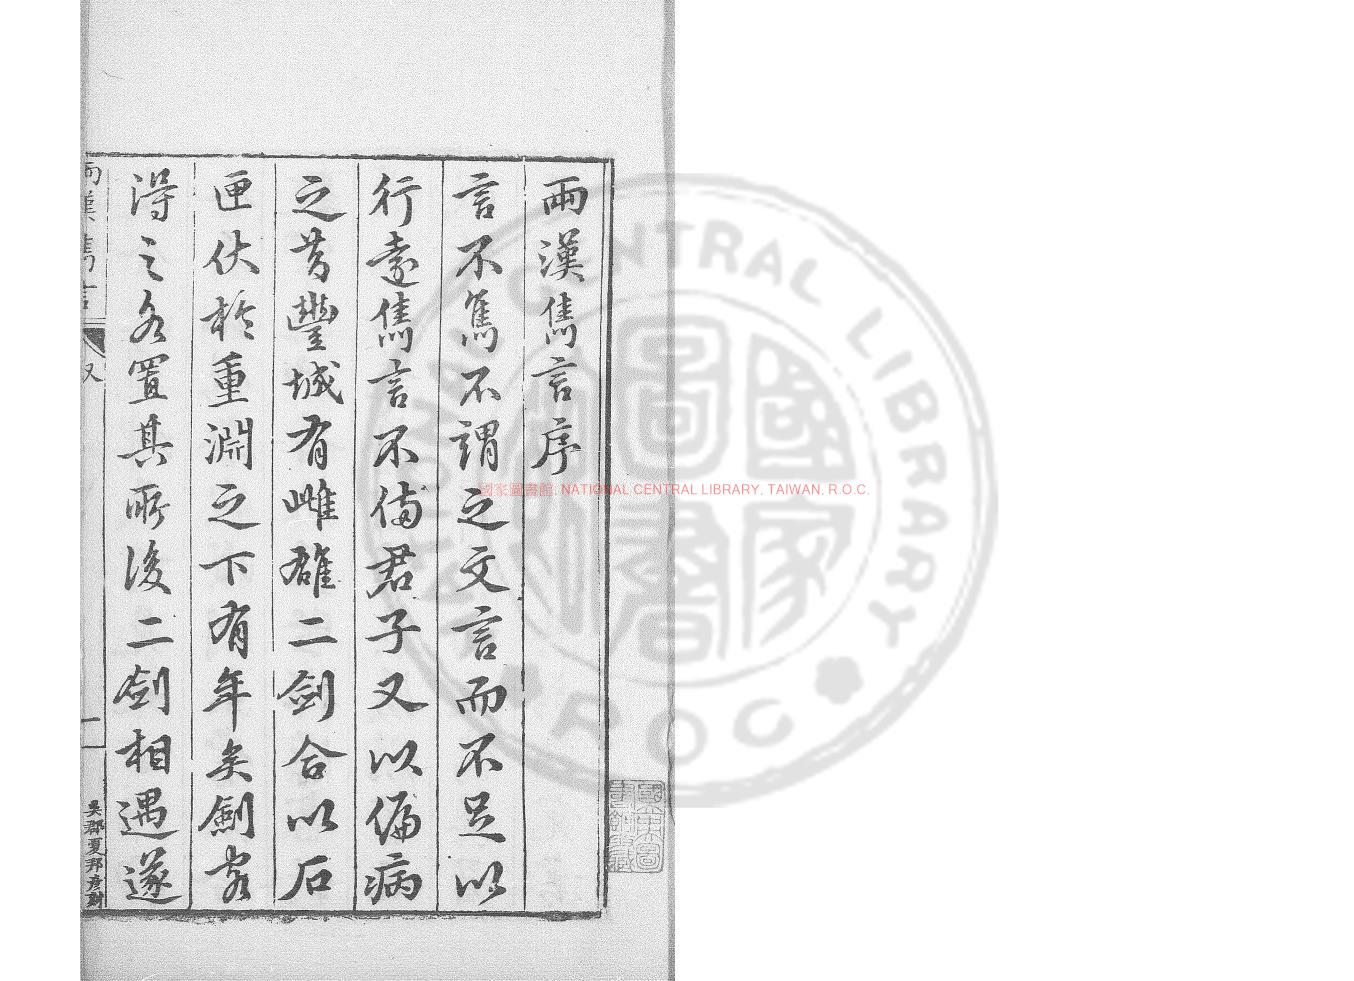 兩漢雋言序
言不雋不謂之文言而不足以
行遠雋言不備君子又以偏病
之昔豐城有雌雄二劍合以石
匣伏於重淵之下有年矣劍客
得之各置其所後二劍相遇遂
兩漢雋言
又
一
吳郡夏邦彥刻
國家圖書館, NATIONAL CENTRAL LIBRARY, TAIWAN, R.O.C.
NATIONAL CENTRAL LIBRARY
ROC
國家圖書